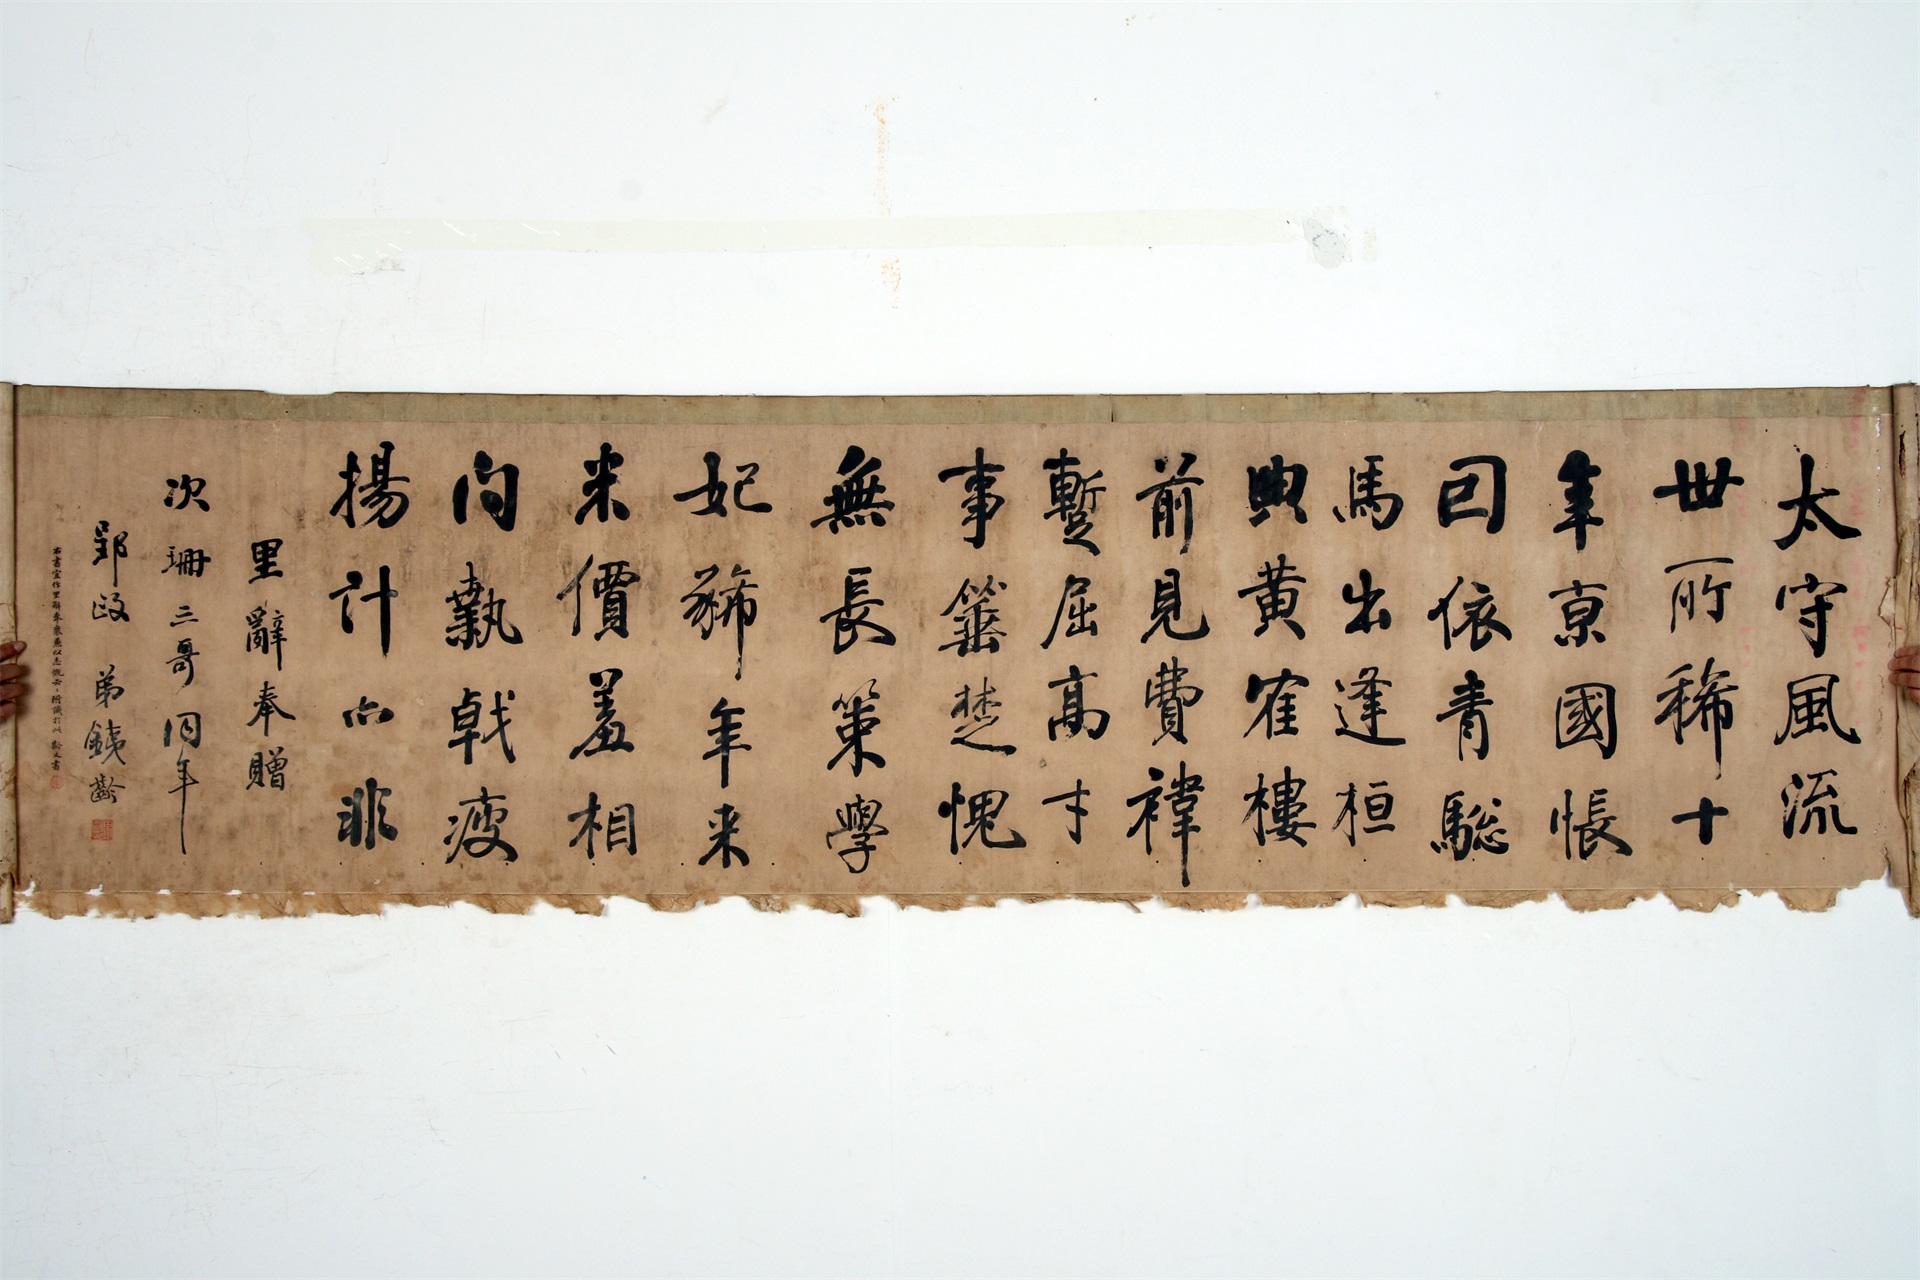 太守風流
世所稀十
年京國悵
回依青驄
馬出逢桓
典黃隺樓
前見費禕
暫屈高才
事箠楚愧
無長策學
妃豨年来
米價羞相
问執戟疲
揚計亦非
里辭奉贈
次珊三哥同年
郢政 弟錢齡